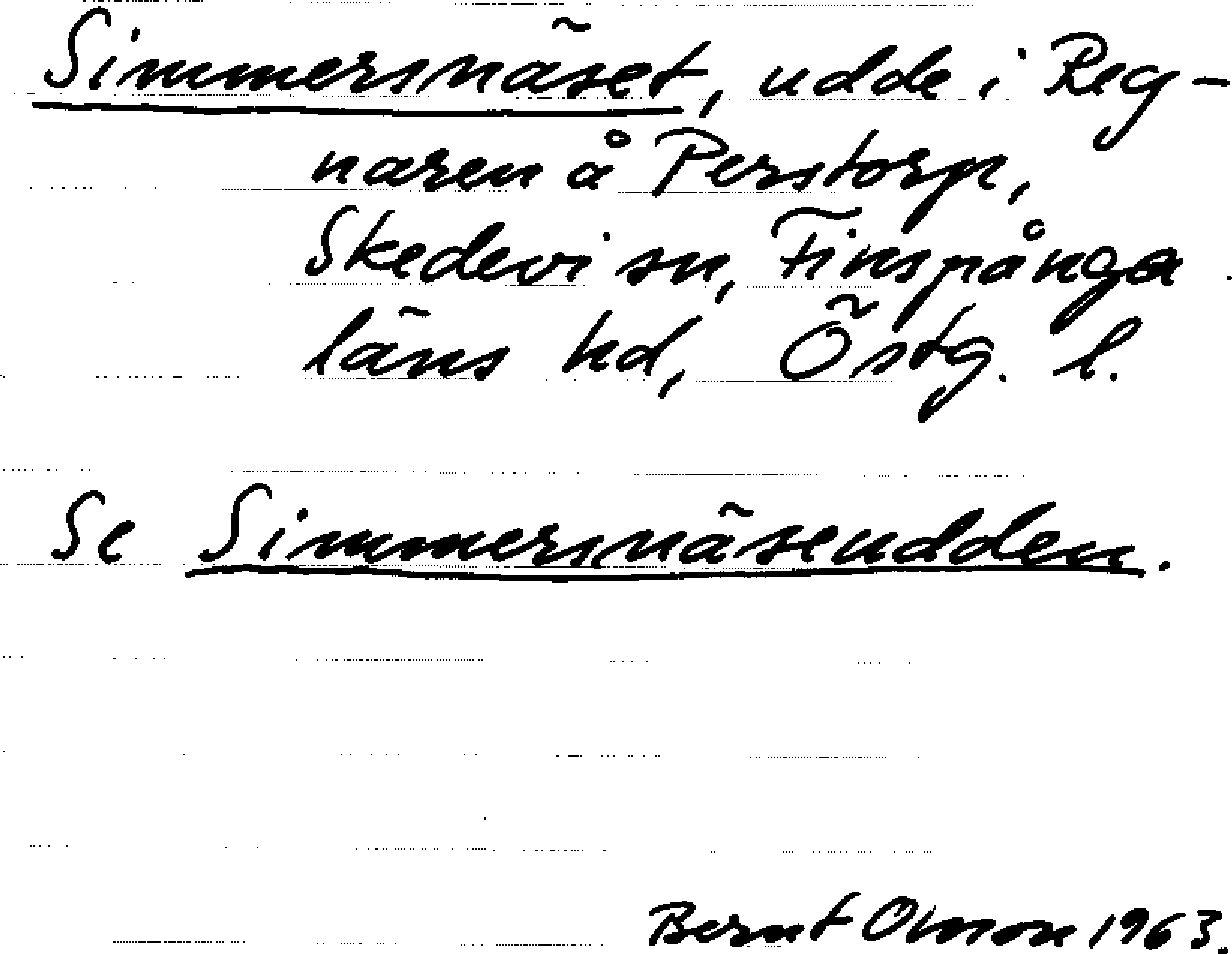 Simmersnäset, udde i Reg-
naren å Perstorp,
Skedevi sn, Finspånga
läns hd, Östg. l.
Se Simmersnäsudden.
Bernt Olsson 1963.